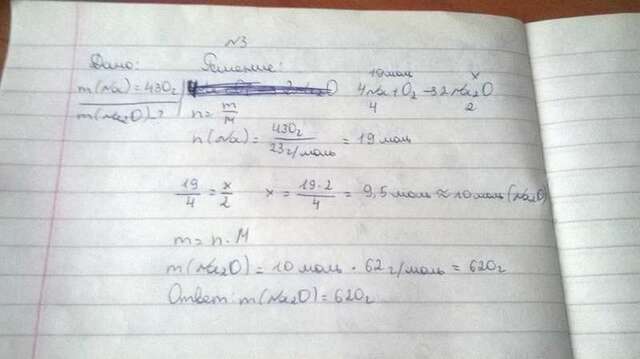 №3
Дано:
Решение:
m(Na)=430г
4Na+O₂→2Na₂O
19моль
x
4
2
m(Na₂O)-?
n=m/M
n(Na)=430г/23г/моль=19моль
19/4=x/2 x=19·2/4=9,5моль≈10моль(Na₂O)
m=n·M
m(Na₂O)=10моль·62г/моль=620г
Ответ: m(Na₂O)=620г